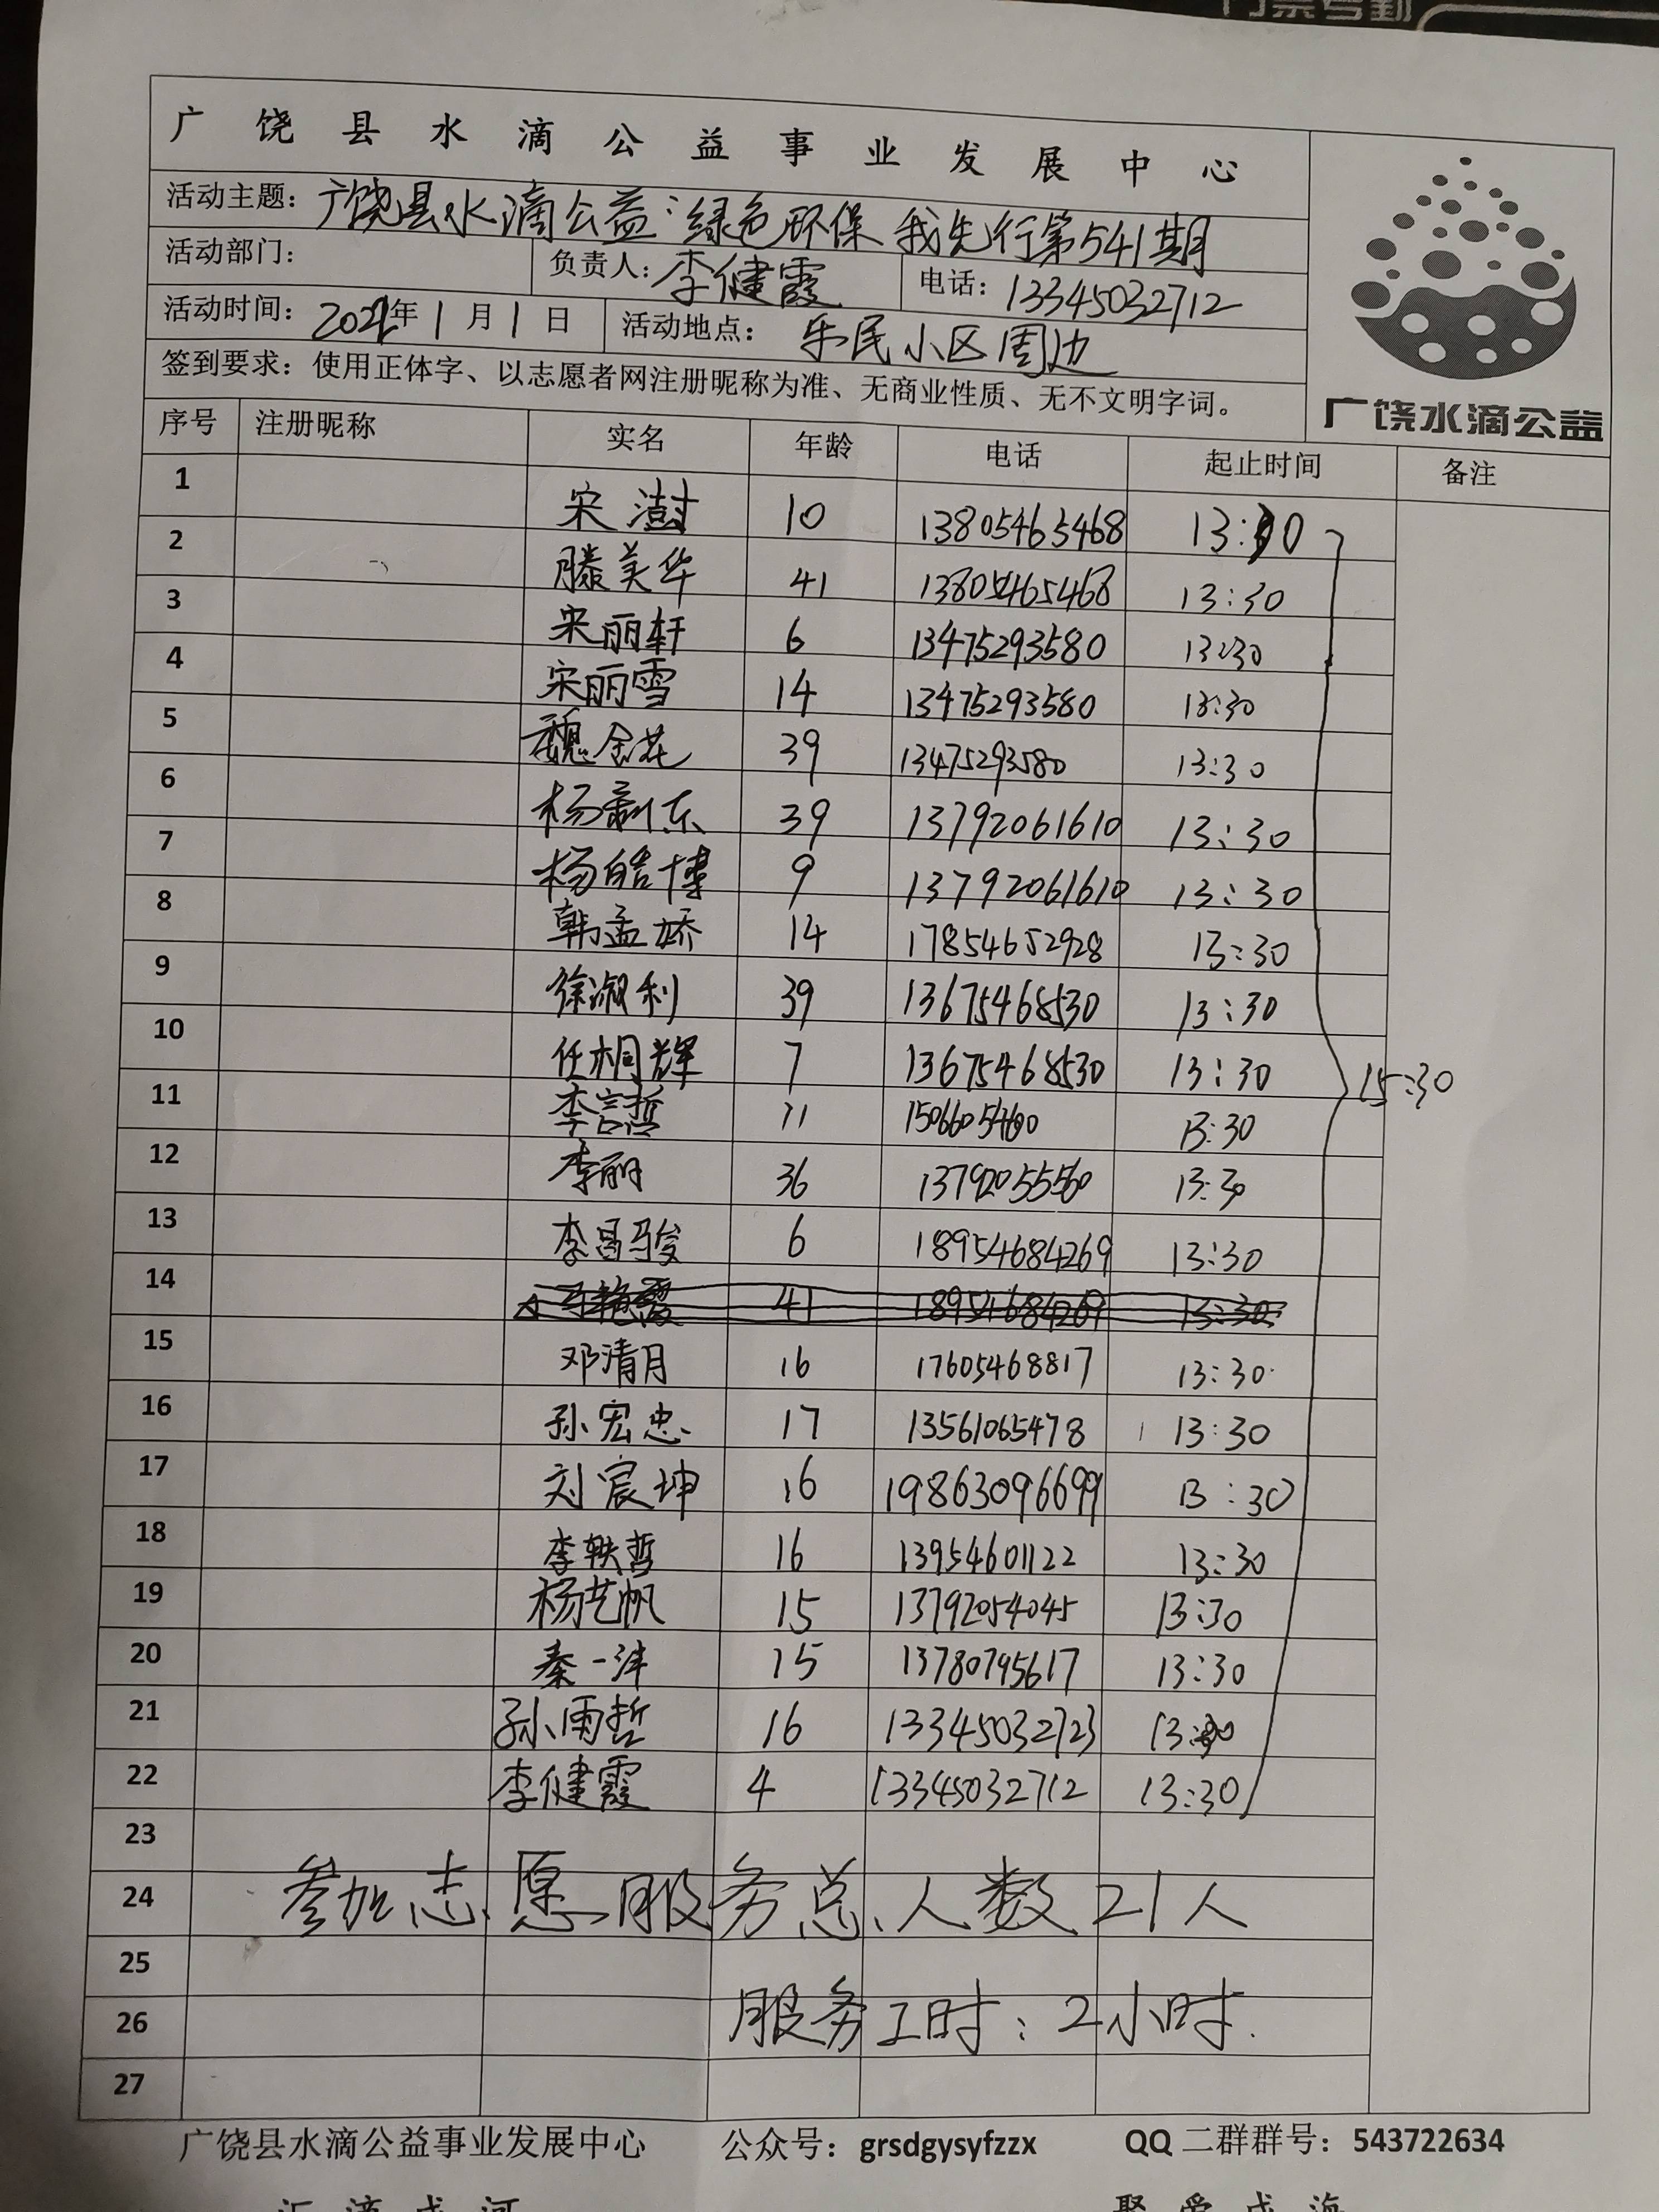 门票考勤
广饶县水滴公益事业发展中心
活动主题：广饶县水滴公益：绿色环保 我先行第541期
活动部门：  负责人：李健霞  电话：13345032712
活动时间：年1月1日  活动地点：乐民小区周边
签到要求：使用正体字、以志愿者网注册昵称为准、无商业性质、无不文明字词。
广饶水滴公益
序号 注册昵称 实名 年龄 电话 起止时间 备注
1 宋澍 10 13805465468 13:30
2 滕美华 41 13805465468 13:30
3 宋丽轩 6 13475293580 13:30
4 宋丽雪 14 13475293580 13:30
5 魏金花 39 13475293580 13:30
6 杨东 39 13792061610 13:30
7 杨皓博 9 13792061610 13:30
8 韩孟娇 14 17854652928 13:30
9 徐淑利 39 13675468530 13:30
10 任桐辉 7 13675468530 13:30 15:30
11 李言哲 11 13:30
12 李丽 36 13792055560 13:30
13 李昌骏 6 18954684269 13:30
14 41 18954684269 13:30
15 邓清月 16 17605468817 13:30
16 孙宏忠 17 13561065478 13:30
17 刘宸坤 16 19863096699 13:30
18 李轶哲 16 13954601122 13:30
19 杨艺帆 15 13792054045 13:30
20 秦一沣 15 13780795617 13:30
21 孙雨哲 16 13345032723 13:30
22 李健霞 4 13345032712 13:30
23
24 参加志愿服务总人数21人
25
26 服务工时：2小时.
27
广饶县水滴公益事业发展中心 公众号：grsdgysyfzzx QQ二群群号：543722634
汇滴成河 聚爱成海